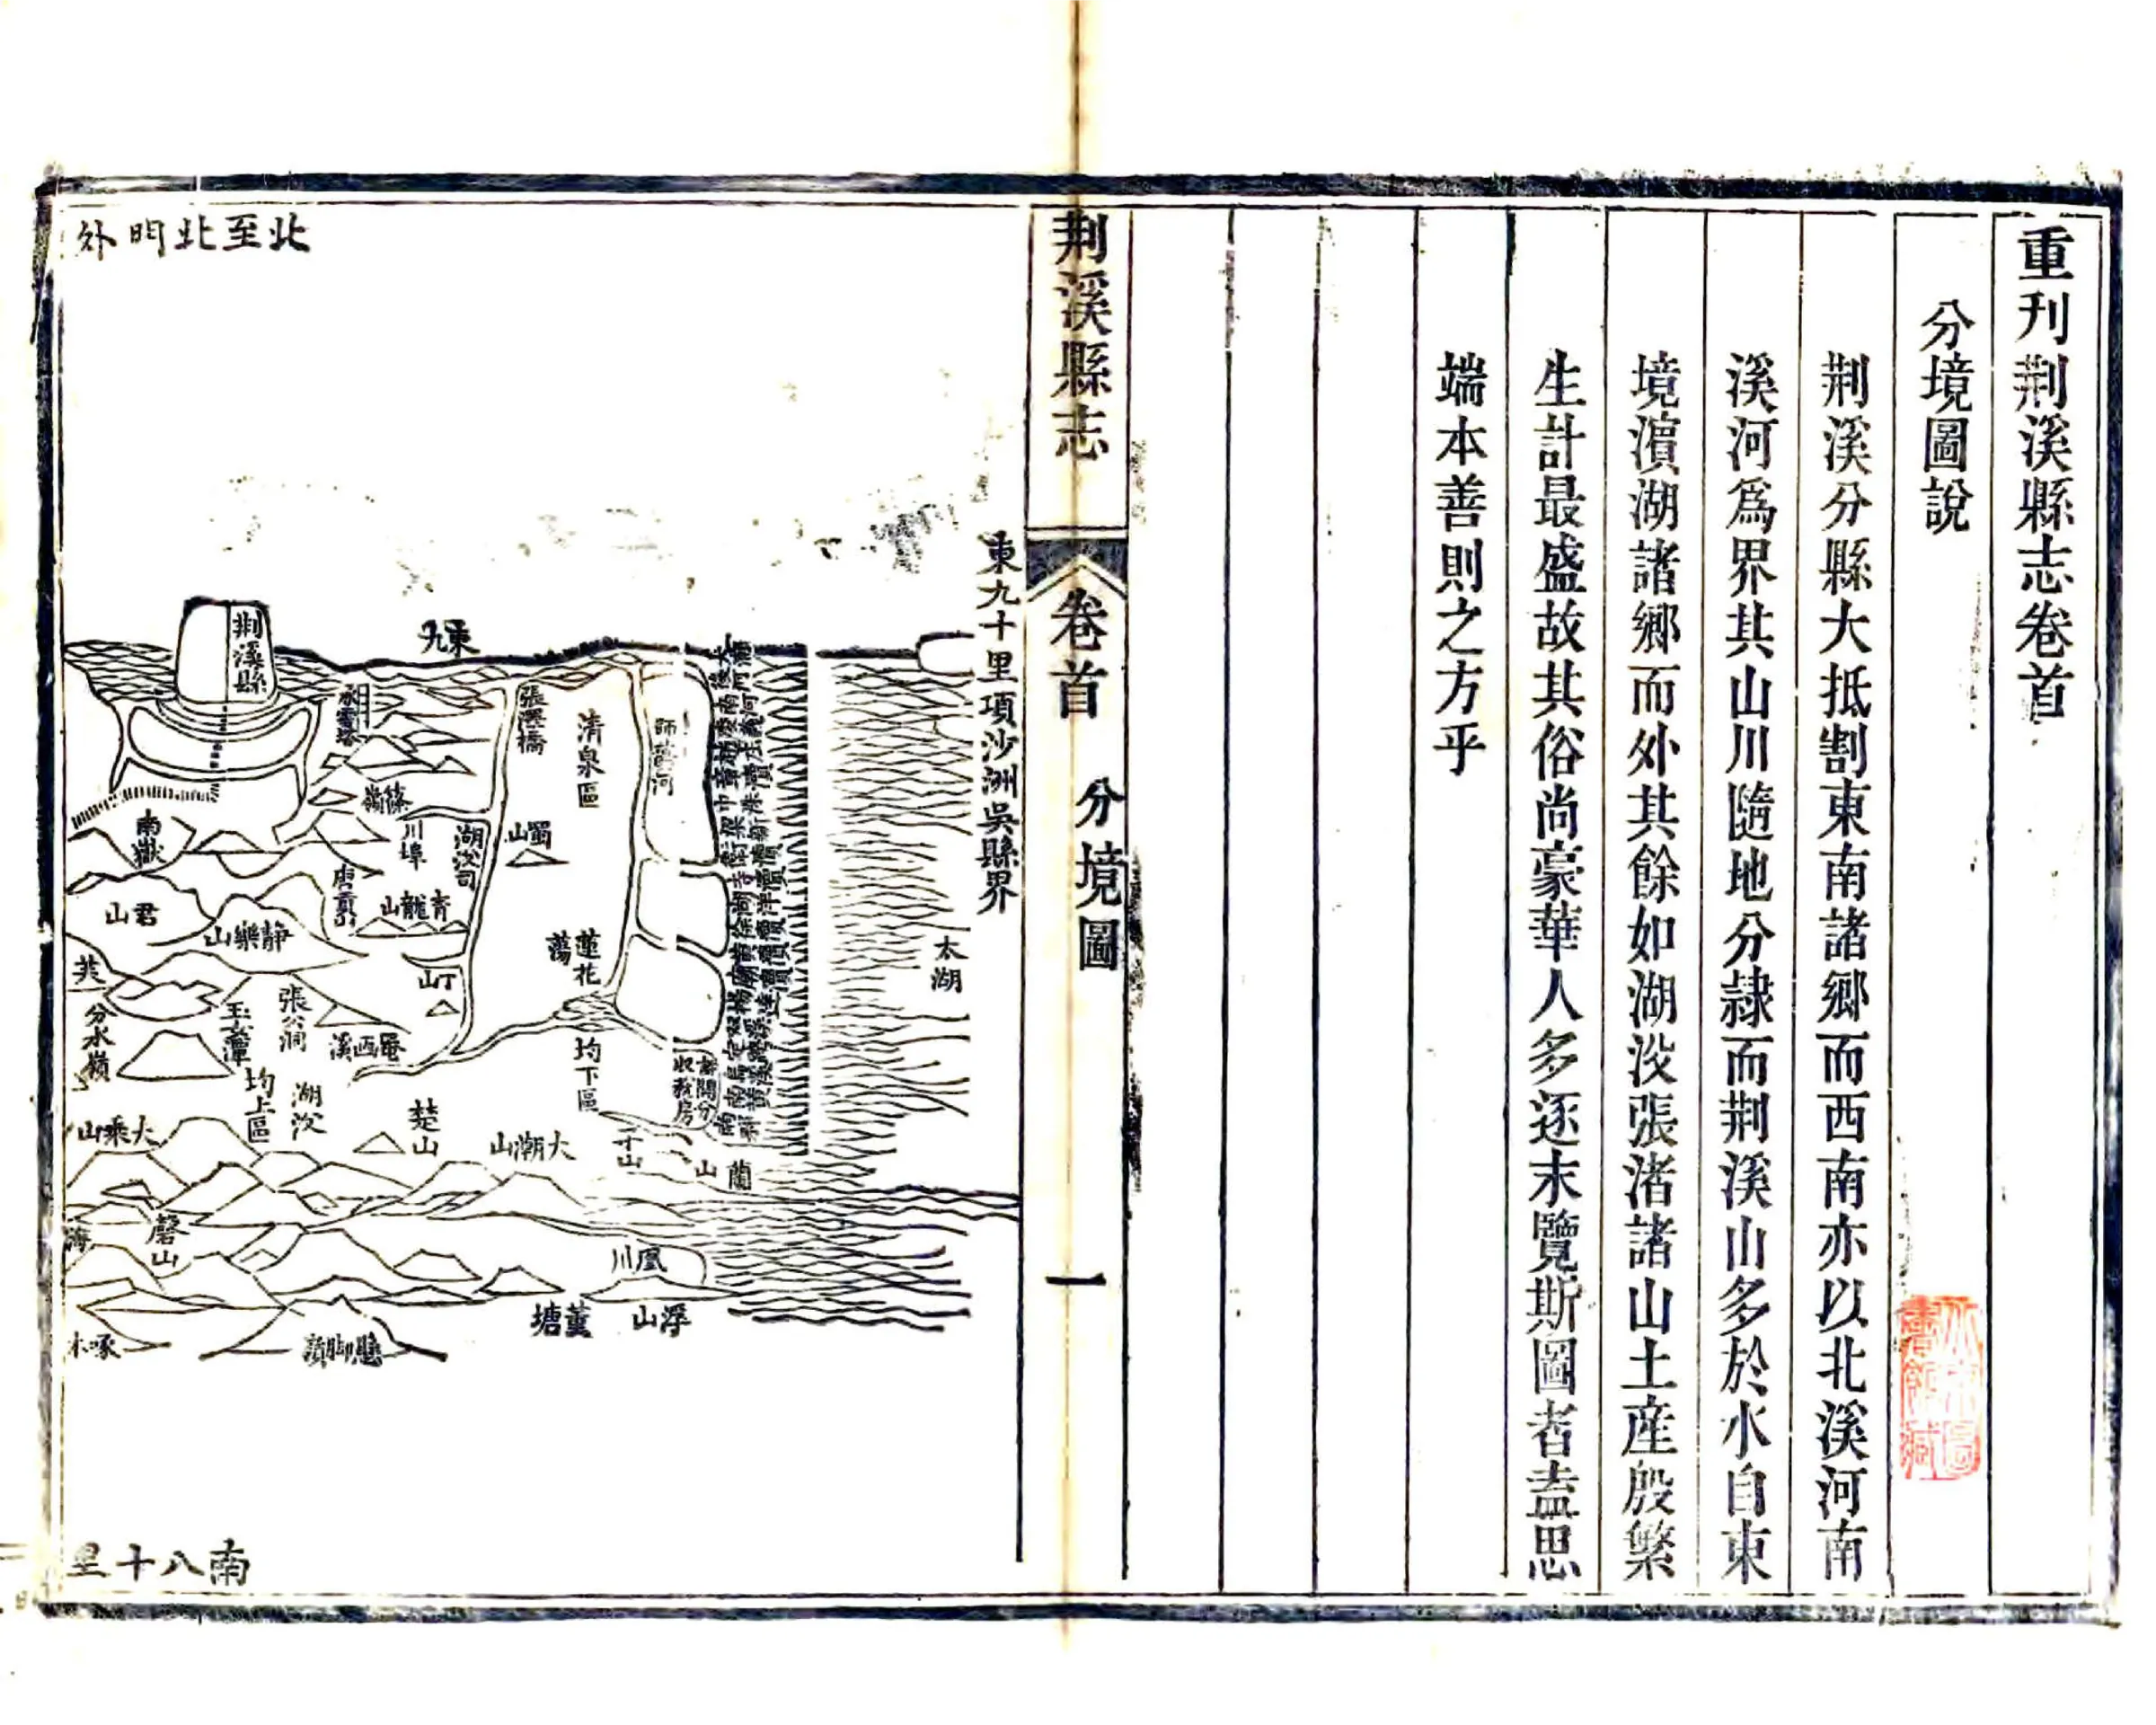 重刊荆溪縣志卷首
分境圖說
荆溪分縣大抵割東南諸鄉而西南亦以北溪河南
溪河爲界其山川隨地分隷而荆溪山多於水自東
境濵湖諸鄉而外其餘如湖㳇張渚諸山土産殷繁
生計最盛故其俗尚豪華人多逐末覽斯圖者盍思
端本善則之方乎
荆溪縣志
卷首
分境圖
一
東九十里項沙洲吳縣界
太湖
北至北門外
荆溪縣
東九
張澤橋
清泉區
蜀山
湖㳇司
川埠
南嶽
君山
靜樂山
青龍山
唐貢山
丁山
蓮花蕩
張公洞
玉女潭
罨西溪
分水嶺
均上區
湖㳇
均下區
楚山
大潮山
大乘山
蘭山
磬山
凰川
浮山
董塘
懸脚嶺
啄木
南八十里